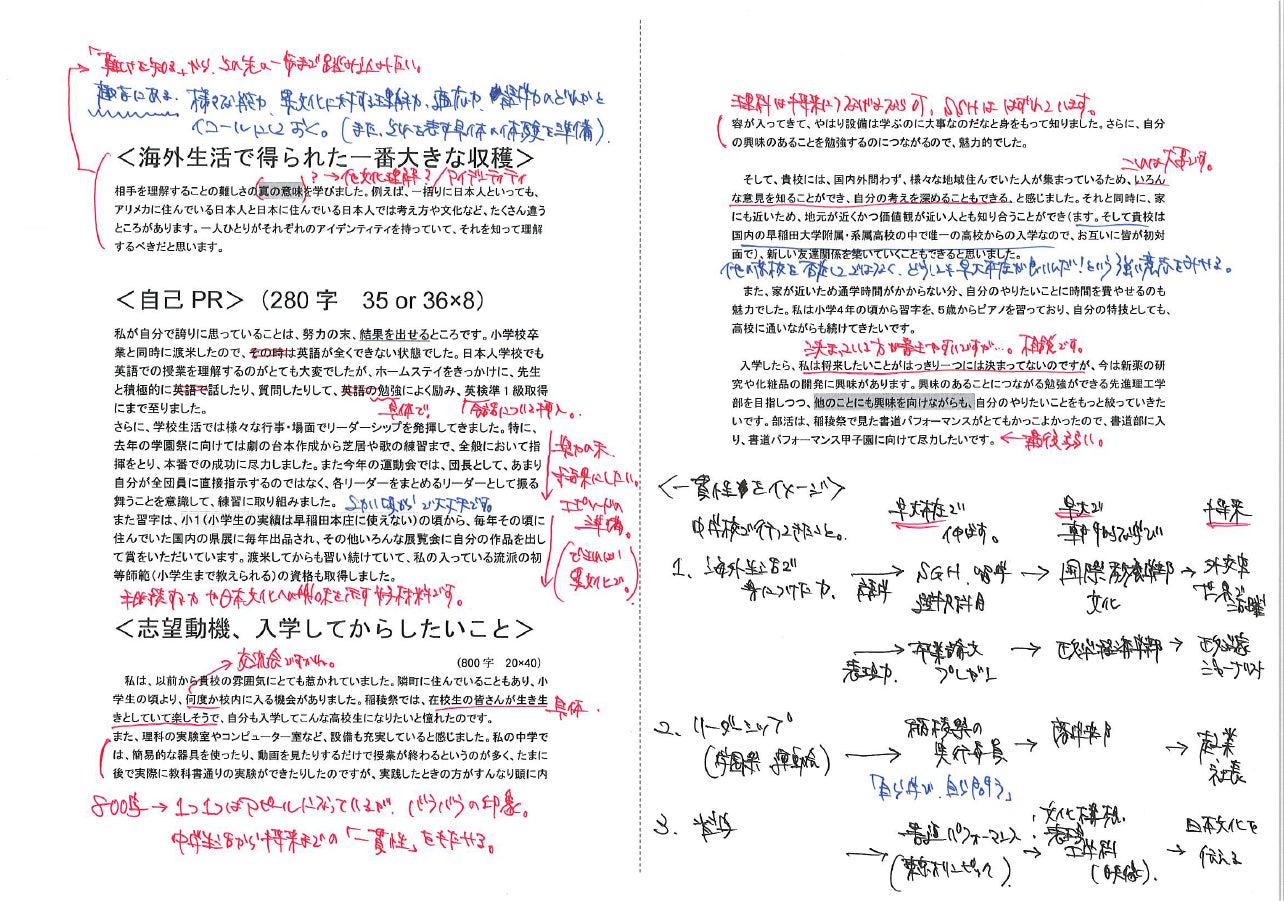 「難しさを知る」から、その先の一歩まで踏み込みたい。
趣旨にある、様々な能力、異文化に対する理解力、適応力、語学力のどれかと
イコールにしておく。(また、それを表す具体の体験を準備)
<海外生活で得られた一番大きな収穫>
?→他文化理解?/アイデンティティ
相手を理解することの難しさの真の意味を学びました。例えば、一括りに日本人といっても、
アリメカに住んでいる日本人と日本に住んでいる日本人では考え方や文化など、たくさん違う
ところがあります。一人ひとりがそれぞれのアイデンティティを持っていて、それを知って理解
するべきだと思います。
<自己 PR>(280 字 35 or 36×8)
私が自分で誇りに思っていることは、努力の末、結果を出せるところです。小学校卒
業と同時に渡米したので、その時は英語が全くできない状態でした。日本人学校でも
英語での授業を理解するのがとても大変でしたが、ホームステイをきっかけに、先生
と積極的に英語で話したり、質問したりして、英語の勉強によく励み、英検準1級取得
にまで至りました。
具体で。
さらに、学校生活では様々な行事・場面でリーダーシップを発揮してきました。特に、
去年の学園祭に向けては劇の台本作成から芝居や歌の練習まで、全般において指
揮をとり、本番での成功に尽力しました。また今年の運動会では、団長として、あまり
自分が全団員に直接指示するのではなく、各リーダーをまとめるリーダーとして振る
舞うことを意識して、練習に取り組みました。
努力の末
成果にしたい。
エピソードの
準備。
(できれば
異文化で。)
また習字は、小1(小学生の実績は早稲田本庄に使えない)の頃から、毎年その頃に
住んでいた国内の県展に毎年出品され、その他いろんな展覧会に自分の作品を出し
て賞をいただいています。渡米してからも習い続けていて、私の入っている流派の初
等師範(小学生まで教えられる)の資格も取得しました。
継続する力や日本文化への興味を示す好材料です。
<志望動機、入学してからしたいこと>
交流会ですかね。
(800 字 20×40)
私は、以前から貴校の雰囲気にとても惹かれていました。隣町に住んでいることもあり、小
学生の頃より、何度か校内に入る機会がありました。稲稜祭では、在校生の皆さんが生き生
きとしていて楽しそうで、自分も入学してこんな高校生になりたいと憧れたのです。
具体
また、理科の実験室やコンピューター室など、設備も充実していると感じました。私の中学で
は、簡易的な器具を使ったり、動画を見たりするだけで授業が終わるというのが多く、たまに
後で実際に教科書通りの実験ができたりしたのですが、実践したときの方がすんなり頭に内
800字→1つ1つはアピールになっているが、バラバラの印象。
中学生活から将来までの「一貫性」をもたせる。
理科は将来につなげるならOK、SGHははずれています。
容が入ってきて、やはり設備は学ぶのに大事なのだなと身をもって知りました。さらに、自分
の興味のあることを勉強するのにつながるので、魅力的でした。
これは大事です。
そして、貴校には、国内外問わず、様々な地域住んでいた人が集まっているため、いろん
な意見を知ることができ、自分の考えを深めることもできる、と感じました。それと同時に、家
にも近いため、地元が近くかつ価値観が近い人とも知り合うことができます。そして貴校は
国内の早稲田大学附属・系属高校の中で唯一の高校からの入学なので、お互いに皆が初対
面で、新しい友達関係を築いていくこともできると思いました。
他の高校を否定してではなく、どうしても早大本庄が良いんだ!という強い意志を見せる。
また、家が近いため通学時間がかからない分、自分のやりたいことに時間を費やせるのも
魅力でした。私は小学4年の頃から習字を、5歳からピアノを習っており、自分の特技としても、
高校に通いながらも続けてきたいです。
決まっている方が書きやすいですが…。相談です。
入学したら、私は将来したいことがはっきり一つには決まってないのですが、今は新薬の研
究や化粧品の開発に興味があります。興味のあることにつながる勉強ができる先進理工学
部を目指しつつ、他のことにも興味を向けながらも、自分のやりたいことをもっと絞っていきた
いです。部活は、稲稜祭で見た書道パフォーマンスがとてもかっこよかったので、書道部に入
り、書道パフォーマンス甲子園に向けて尽力したいです。
←最後弱い。
<一貫性をイメージ>
中学校で行ってきたこと。
早大本庄で
伸ばす。
早大で
専門的な学び
将来
1. 海外生活で
身につけた力
→
語学
SGH、留学
→
国際教養学部
文化
→
外交官
世界で活躍
→
表現力
卒業論文
プレゼン
→
政治経済学部
→
政治家
ジャーナリスト
2. リーダーシップ
(学園祭 運動会)
→
稲稜祭の
実行委員
→
商学部
→
起業
社長
「自ら学び、自ら問う」
3. 習字
→
書道パフォーマンス
(東京オリンピック)
→
文化構想、
表現
工学科
(映像)
→
日本文化を
伝える